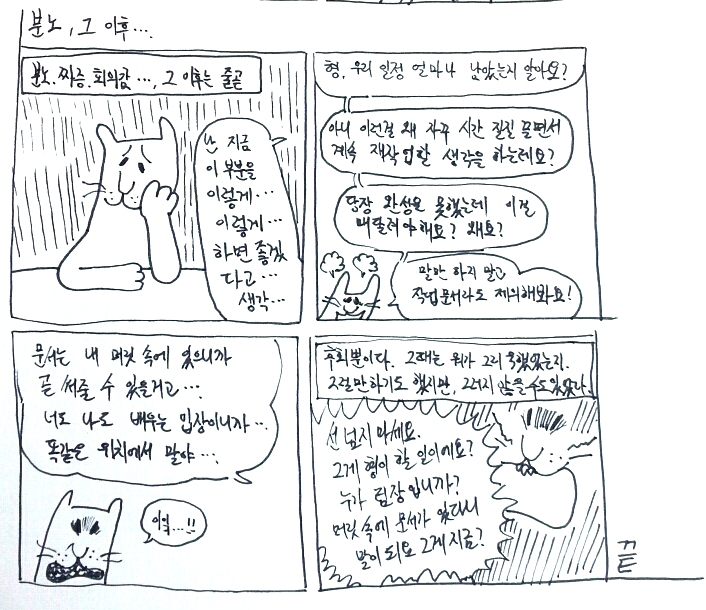 분노, 그 이후...
분노. 짜증. 회의감 ..., 그 이후는 줄곧
난 지금
이 부분을
이렇게...
이렇게...
하면 좋겠
다고...
생각...
형, 우리 일정 얼마나 남았는지 알아요?
아니 이런걸 왜 자꾸 시간 질질 끌면서
계속 재작업할 생각을 하는데요?
당장 완성은 못했는데 이걸
매달려야해요? 왜요?
말만 하지 말고
작업문서라도 제의해봐요!
문서는 내 머릿속에 있으니까
곧 써줄 수 있을거고...
너도 나도 배우는 입장이니까...
똑같은 위치에서 말야...
이익...!!
후회뿐이다. 그때는 뭐가 그리 욱했었는지.
그정만하기도 했지만, 그러지 않을 수도 있었다.
선 넘지 마세요.
그게 형이 할 일이에요?
누가 팀장입니까?
머릿속에 문서가 있다니
말이 되요 그게 지금?
끝